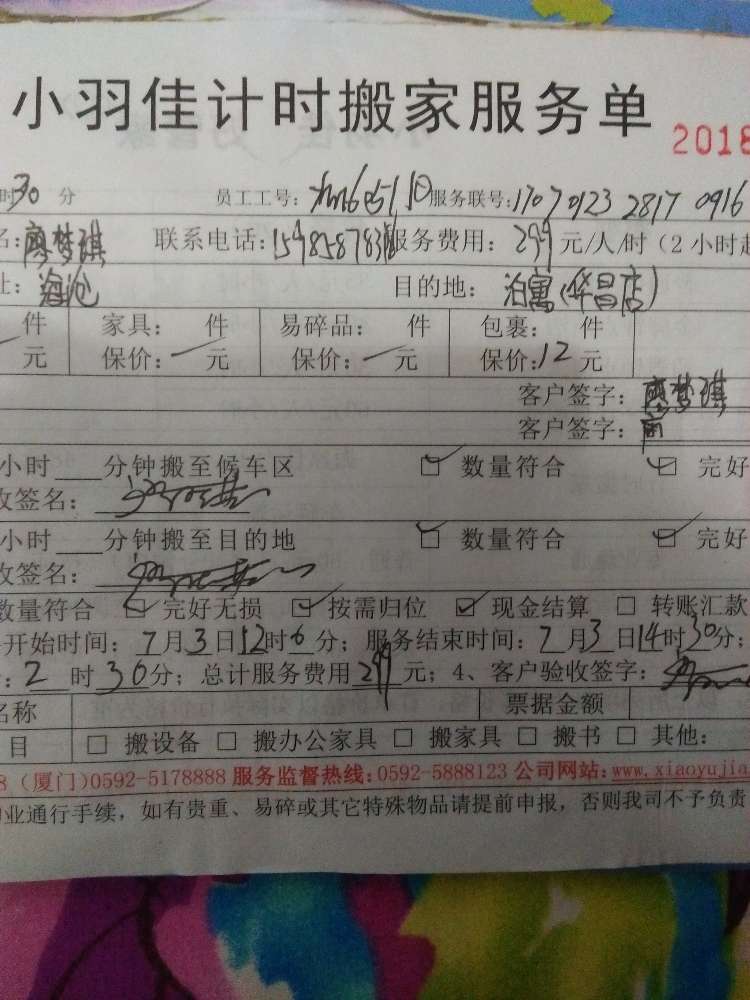 小羽佳计时搬家服务单
2018
时30分 员工工号: 服务联号:1707 0123 2817 0916
名:廖梦琪 联系电话: 服务费用:299元/人/时（2小时起
址:海沧 目的地:泊寓(华昌店)
件 家具: 件 易碎品: 件 包裹: 件
元 保价:一元 保价:一元 保价:12元
客户签字:廖梦琪
客户签字:
小时___分钟搬至候车区 ☑ 数量符合 ☑ 完好
收签名:
小时___分钟搬至目的地 ☑ 数量符合 ☑ 完好
收签名:
数量符合 ☑ 完好无损 ☑ 按需归位 ☑ 现金结算 □ 转账汇款
开始时间:7月3日12时0分;服务结束时间:7月3日14时30分;
:2时30分;总计服务费用299元;4、客户验收签字:
名称 票据金额
目 □ 搬设备 □ 搬办公家具 □ 搬家具 □ 搬书 □ 其他:
8 (厦门)0592-5178888 服务监督热线:0592-5888123 公司网站:www.xiaoyujia
业通行手续，如有贵重、易碎或其它特殊物品请提前申报，否则我司不予负责